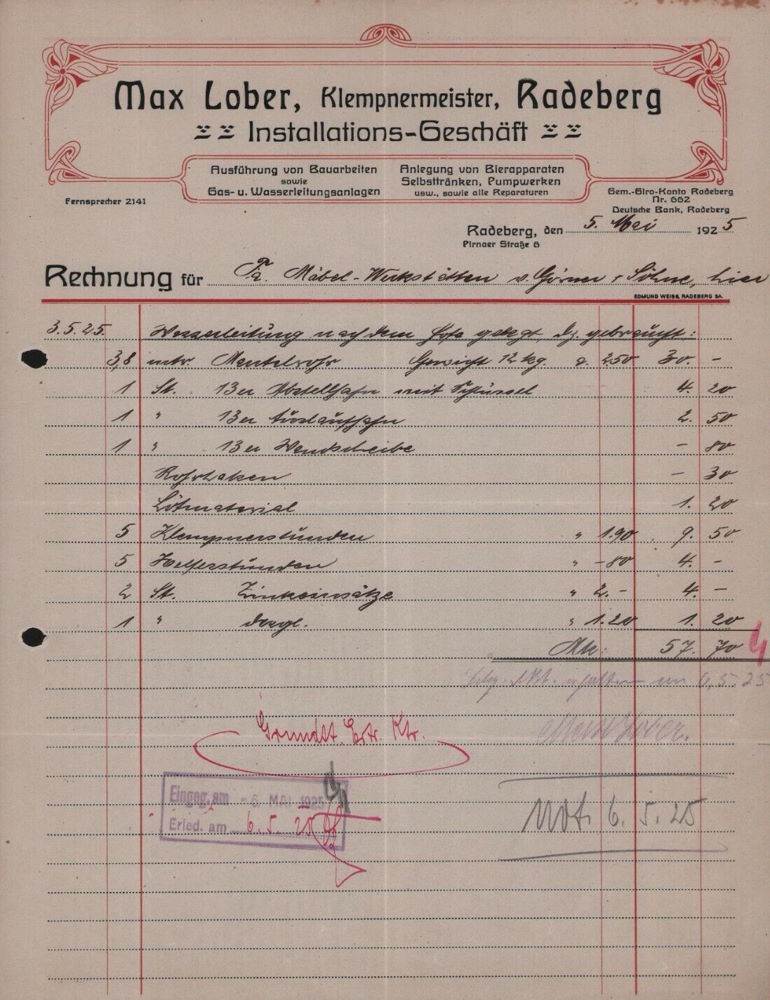 Max Lober, Klempnermeister, Radeberg
Installations-Geschäft
Ausführung von Bauarbeiten
sowie
Gas- u. Wasserleitungsanlagen
Anlegung von Bierapparaten
Selbsttränken, Pumpwerken
usw., sowie alle Reparaturen
Fernsprecher 2141
Gem.-Giro-Konto Radeberg
Nr. 662
Deutsche Bank, Radeberg
Radeberg, den 5. Mai 1925
Pirnaer Straße 6
Rechnung für Fa. Möbel-Werkstätten v. Görner & Söhne, hier
EDMUND WEISS, RADEBERG SA.
3.5.25. Wasserleitung nach dem Hofe gelegt, dz. gebraucht:
3,8 mtr. Mantelrohr Gewicht 12 kg a 2.50 30. -
1 St. 13er Abstellhahn mit Schlüssel 4. 20
1 " 13er Auslaufhahn 2. 50
1 " 13er Wandscheibe - 80
Rohrhaken - 30
Lötmaterial 1. 20
5 Klempnerstunden " 1.90 9. 50
5 Helferstunden " -80 4. -
2 St. Zinkeinsätze " 2.- 4. -
1 " desgl. " 1.20 1. 20
Mk: 57. 70
erhalten am 6.5.25
Max Lober.
Grundst. Ktr.
Eingeg. am - 6. MAI 1925
Erled. am 6. 5. 25
Not. 6. 5. 25